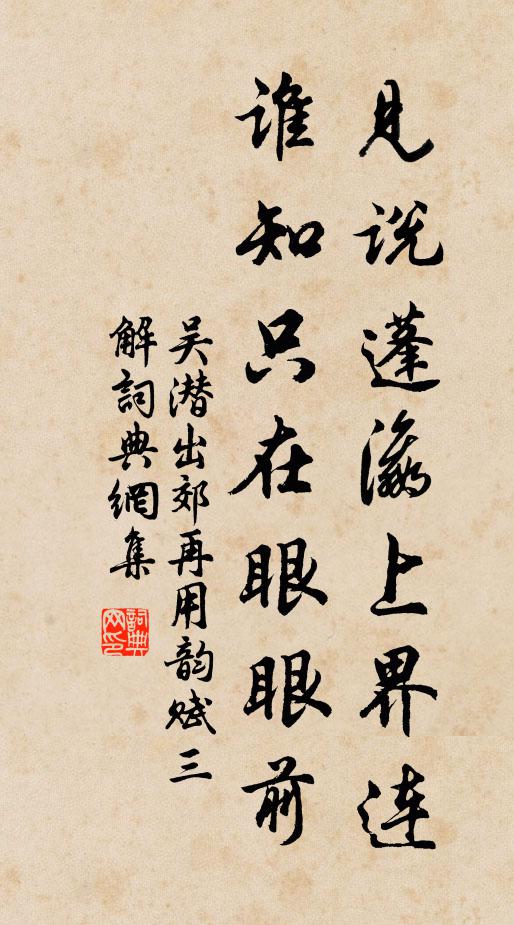 见说蓬瀛上界连
谁知只在眼眼前
吴潜出郊再用韵赋三
解詞典網集
詞典网印